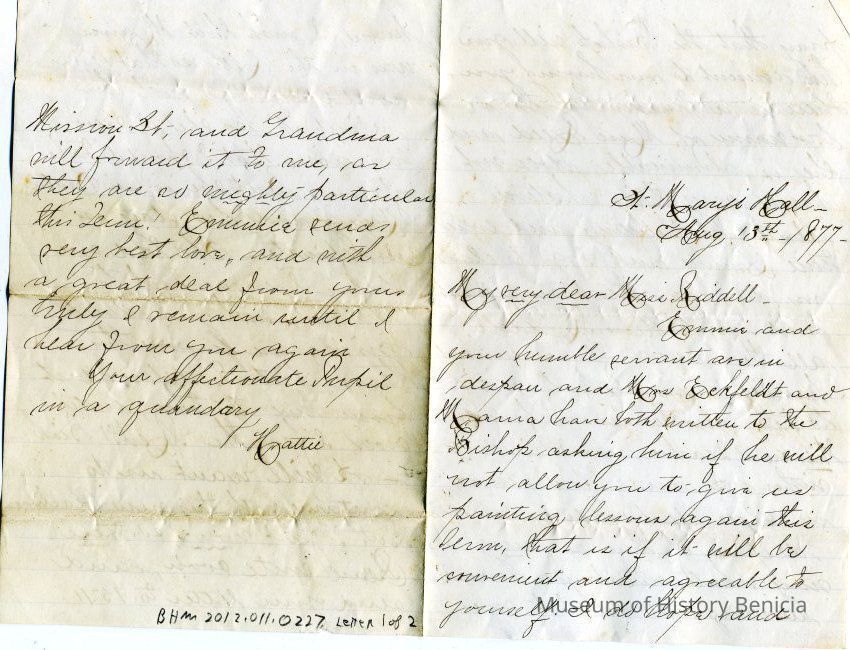 Mission St, and Grandma
will forward it to me, as
they are so mighty particular
this Term! Emmie sends
very best love, and with
a great deal from yours
truly I remain until I
hear from you again
Your affectionate Pupil
in a quandary
Hattie
BHM 2012.011.0227 Letter 1 of 2
St. Mary's Hall -
Aug. 13th - 1877 -
My very dear Miss Riddell -
Emmie and
your humble servant are in
despair and Mrs Eckfeldt and
Mama have both written to the
Bishop asking him if he will
not allow you to give us
painting lessons again this
Term, that is if it will be
convenient and agreeable to
yourself I so hope and
Museum of History Benicia